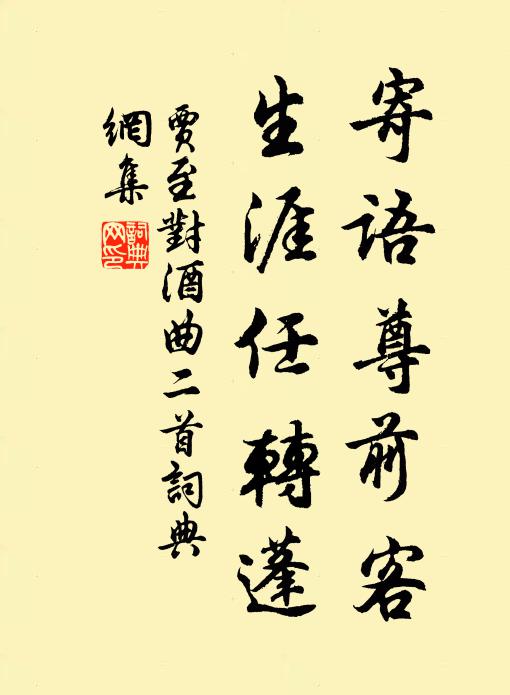 寄語尊前客
生涯任轉蓬
賈至對酒曲二首詞典
網集
詞典
网印